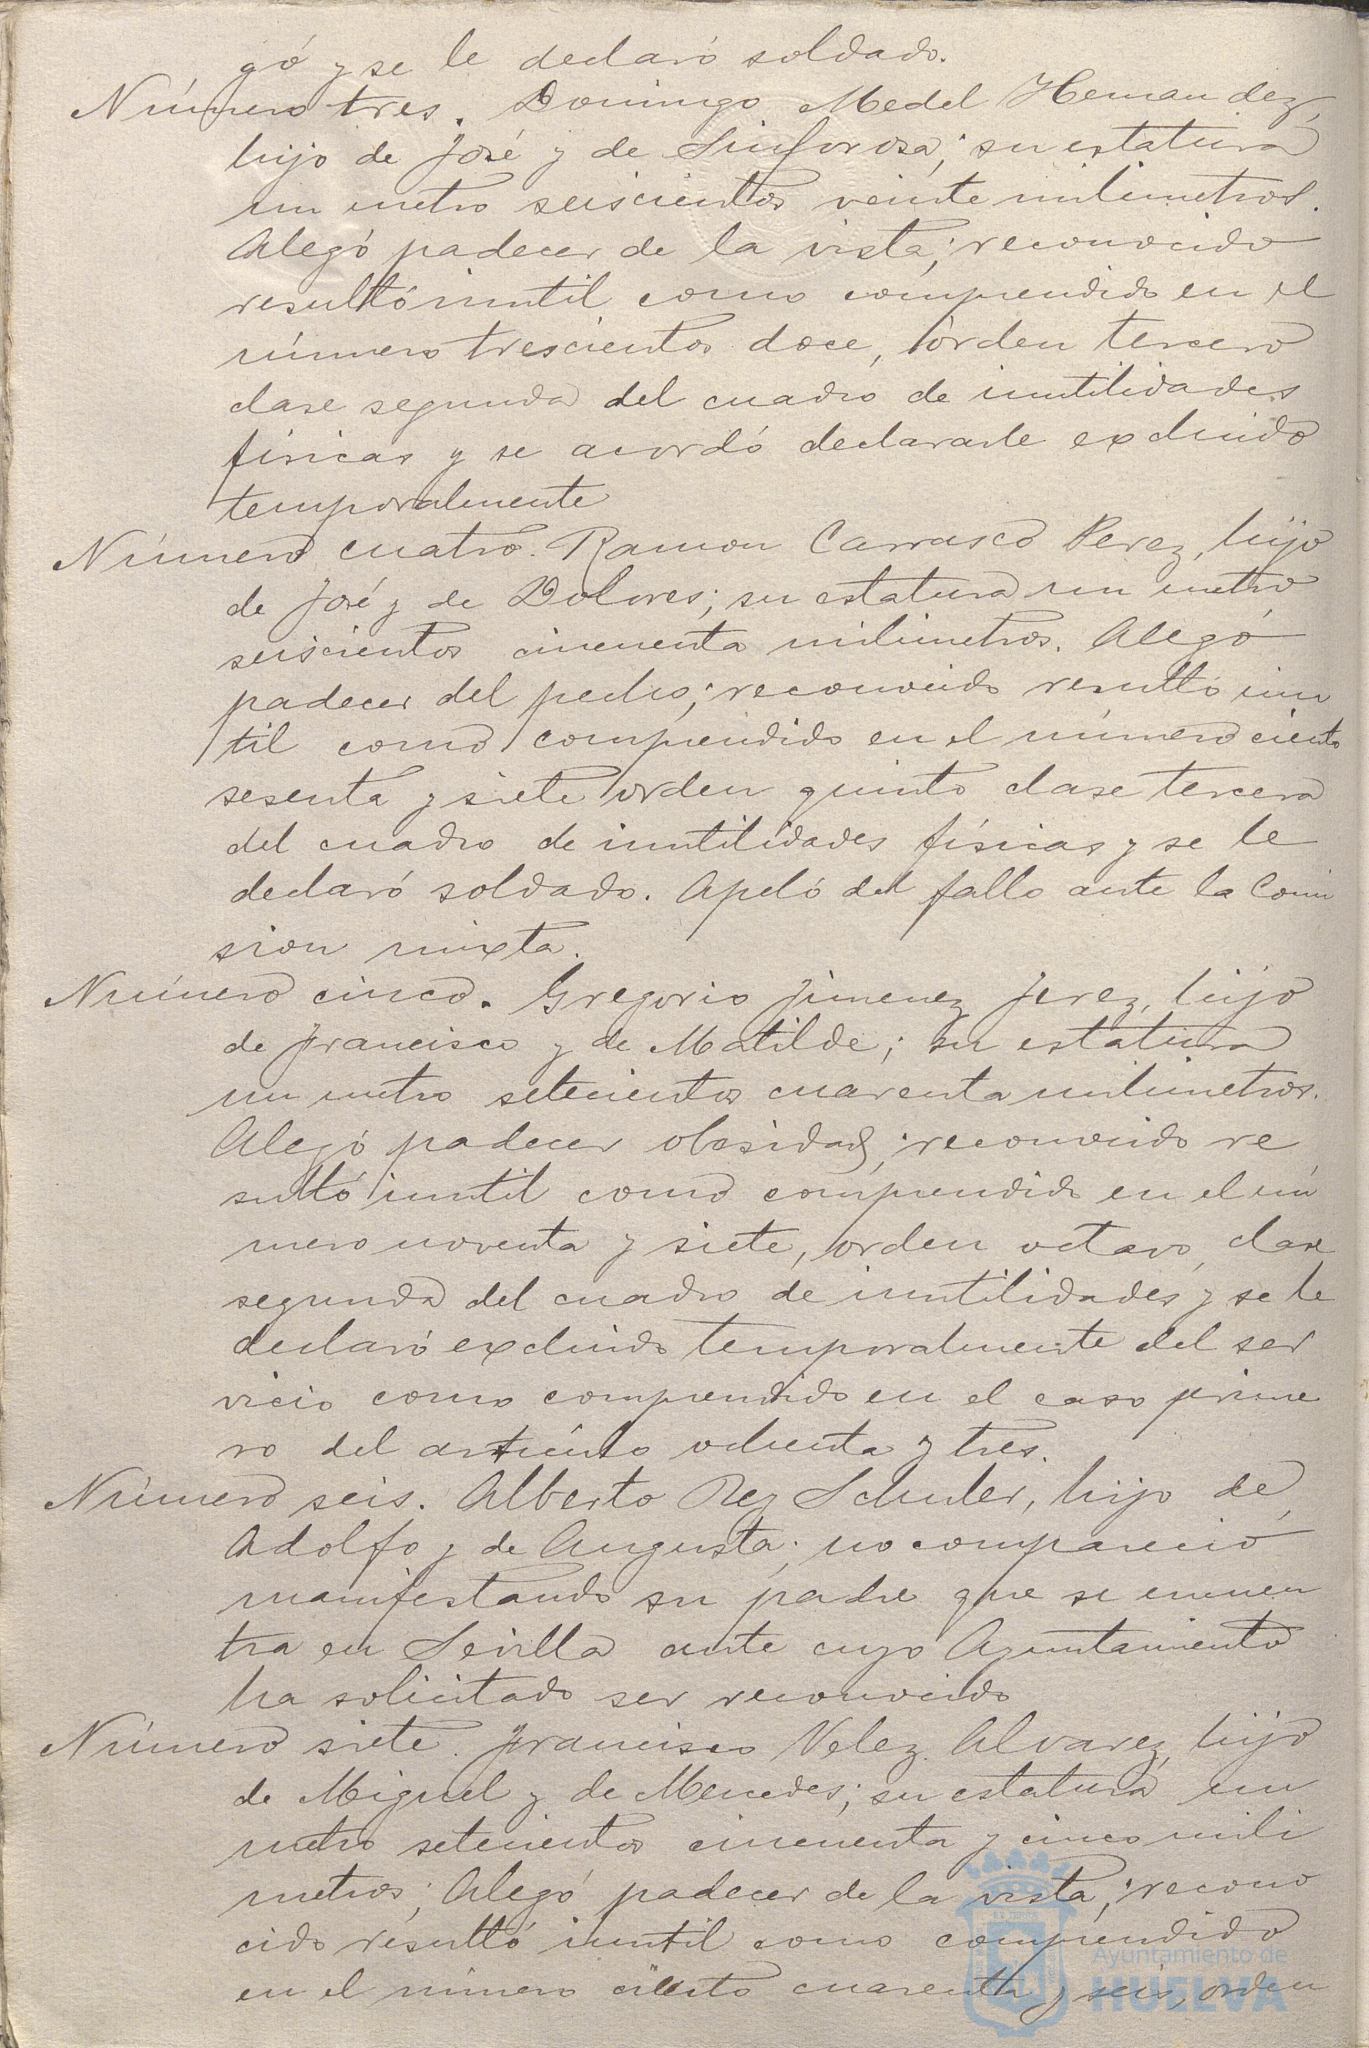 gó y se le declaró soldado.
Número tres. Domingo Medel Hernandez,
hijo de José y de Sinforosa; su estatura
un metro seiscientos veinte milimetros.
Alegó padecer de la vista; reconocido
resultó inutil como comprendido en el
número trescientos doce, orden tercero
clase segunda del cuadro de inutilidades
físicas y se acordó declararle excluido
temporalmente
Número cuatro. Ramon Carrasco Perez, hijo
de José y de Dolores; su estatura un metro
seiscientos cincuenta milimetros. Alegó
padecer del pecho; reconocido resultó inu
til como comprendido en el número ciento
sesenta y siete orden quinto clase tercera
del cuadro de inutilidades físicas y se le
declaró soldado. Apeló del fallo ante la Comi
sion mixta.
Número cinco. Gregorio Jimenez Jerez, hijo
de Francisco y de Matilde; su estatura
un metro setecientos cuarenta milimetros.
Alegó padecer obesidad; reconocido re
sultó inutil como comprendido en el nú
mero noventa y siete, orden octavo, clase
segunda del cuadro de inutilidades y se le
declaró excluido temporalmente del ser
vicio como comprendido en el caso prime
ro del artículo ochenta y tres.
Número seis. Alberto Rey Schuler, hijo de
Adolfo y de Augusta; no compareció
manifestando su padre que se encuen
tra en Sevilla ante cuyo Ayuntamiento
ha solicitado ser reconocido
Número siete. Francisco Velez Alvarez, hijo
de Miguel y de Mercedes; su estatura un
metro setecientos cincuenta y cinco mili
metros; Alegó padecer de la vista; recono
cido resultó inutil como comprendido
en el número ciento cuarenta y seis, orden
Ayuntamiento de
HUELVA